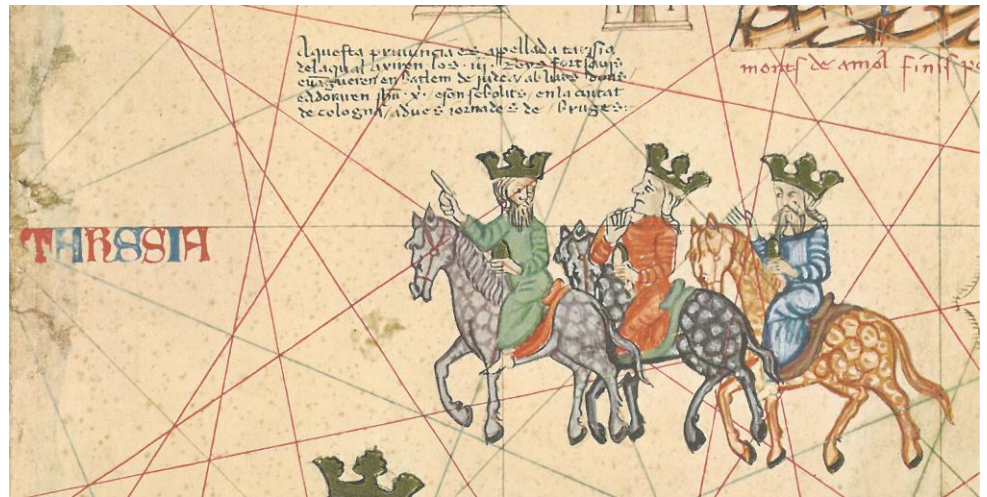 Aquesta provincia es apellada tarsia
dela qual hixiren los .iij. Reys fort savis
e vangueren en batlem de judea / ab lurs dons
e adoraren jhũ .x̃. e son sebolits / en la ciutat
de cologna / a dues jornades de / Bruges:
monts de amol finis pe
TARSSIA